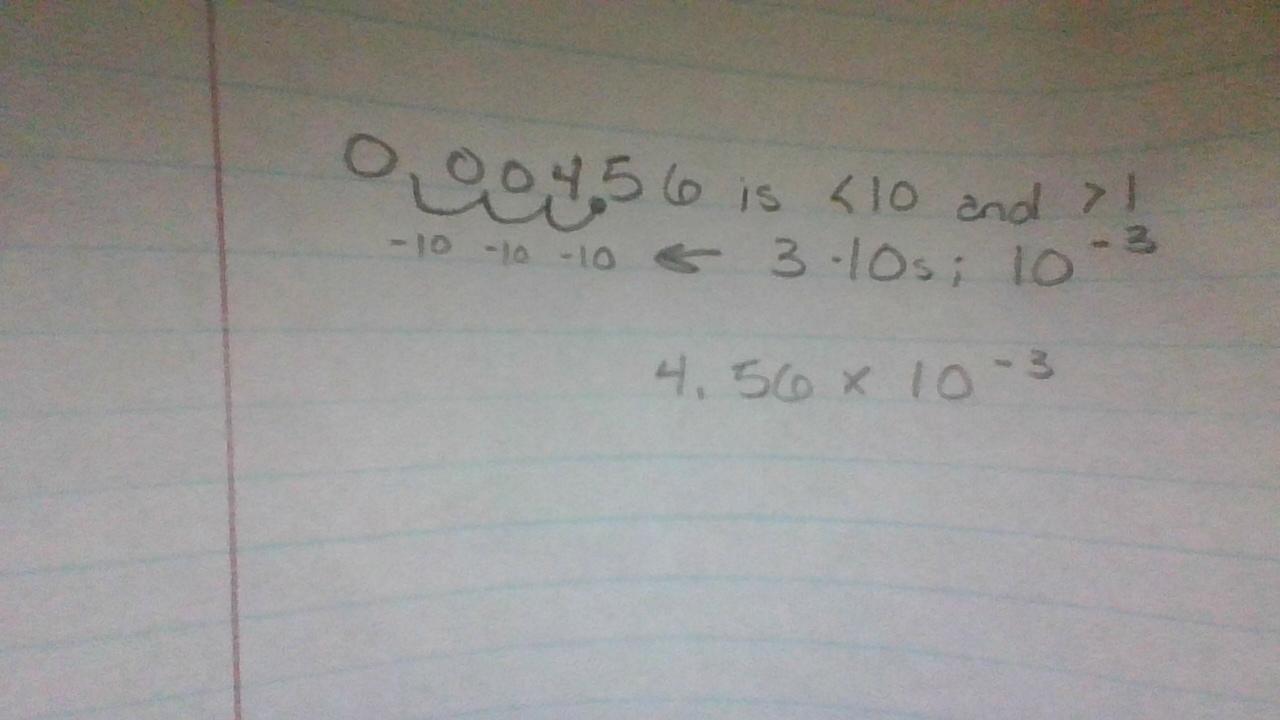 0.004.56 is <10 and >1
-10 -10 -10 ← 3 -10s; 10⁻³
4.56 × 10⁻³